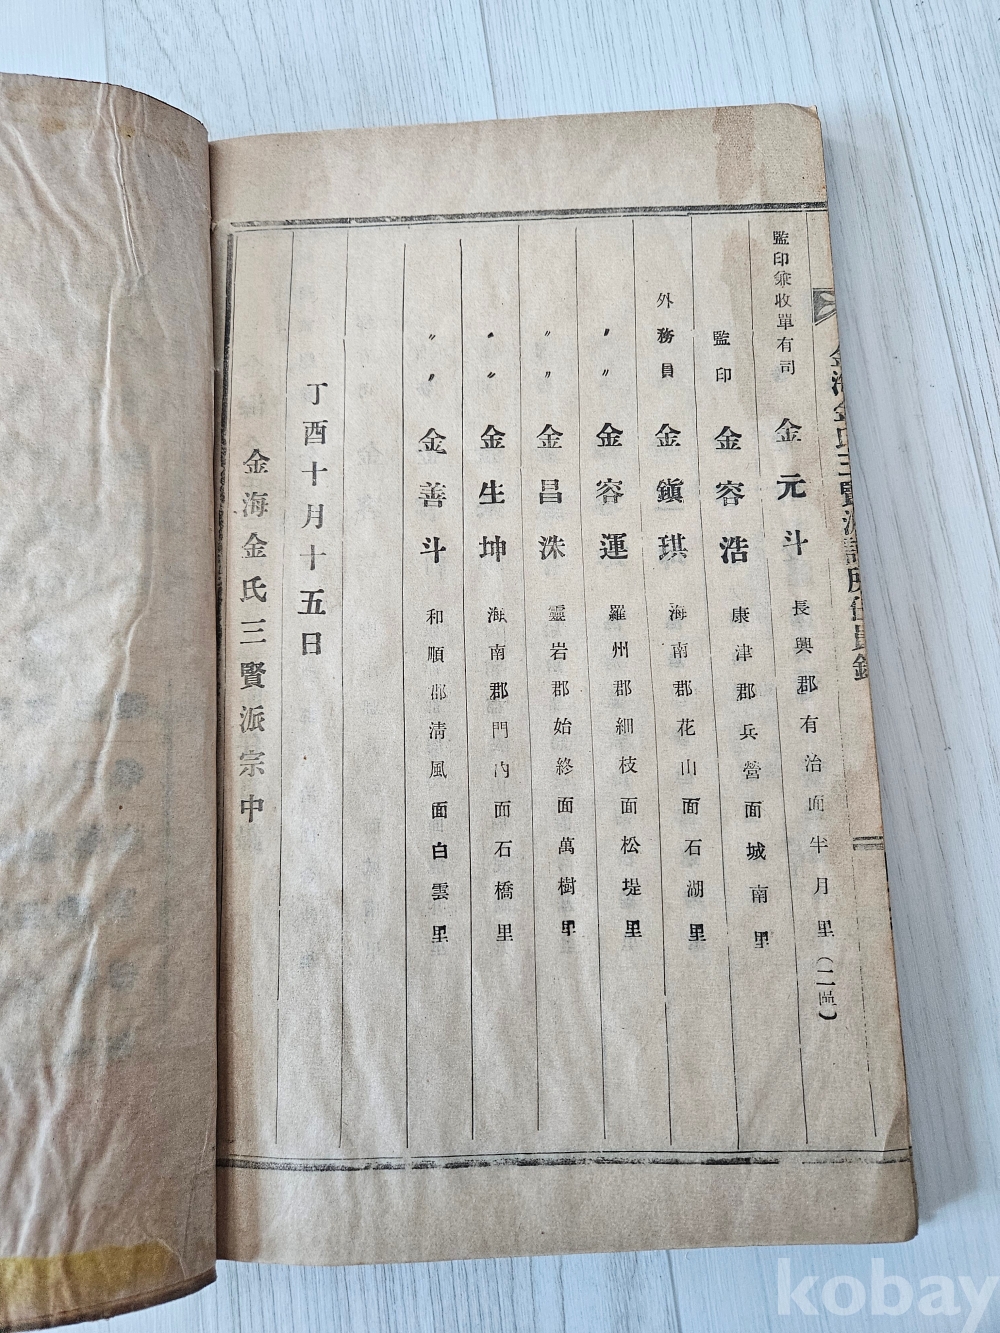 金海金氏三賢派譜所任員錄
監印兼收單有司 金元斗 長興郡有治面半月里(二區)
監印 金容浩 康津郡兵營面城南里
外務員 金鎭珙 海南郡花山面石湖里
〃 〃 金容運 羅州郡細枝面松堤里
〃 〃 金昌洙 靈岩郡始終面萬樹里
〃 〃 金生坤 海南郡門內面石橋里
〃 〃 金善斗 和順郡淸風面白雲里
丁酉十月十五日
金海金氏三賢派宗中
kobay